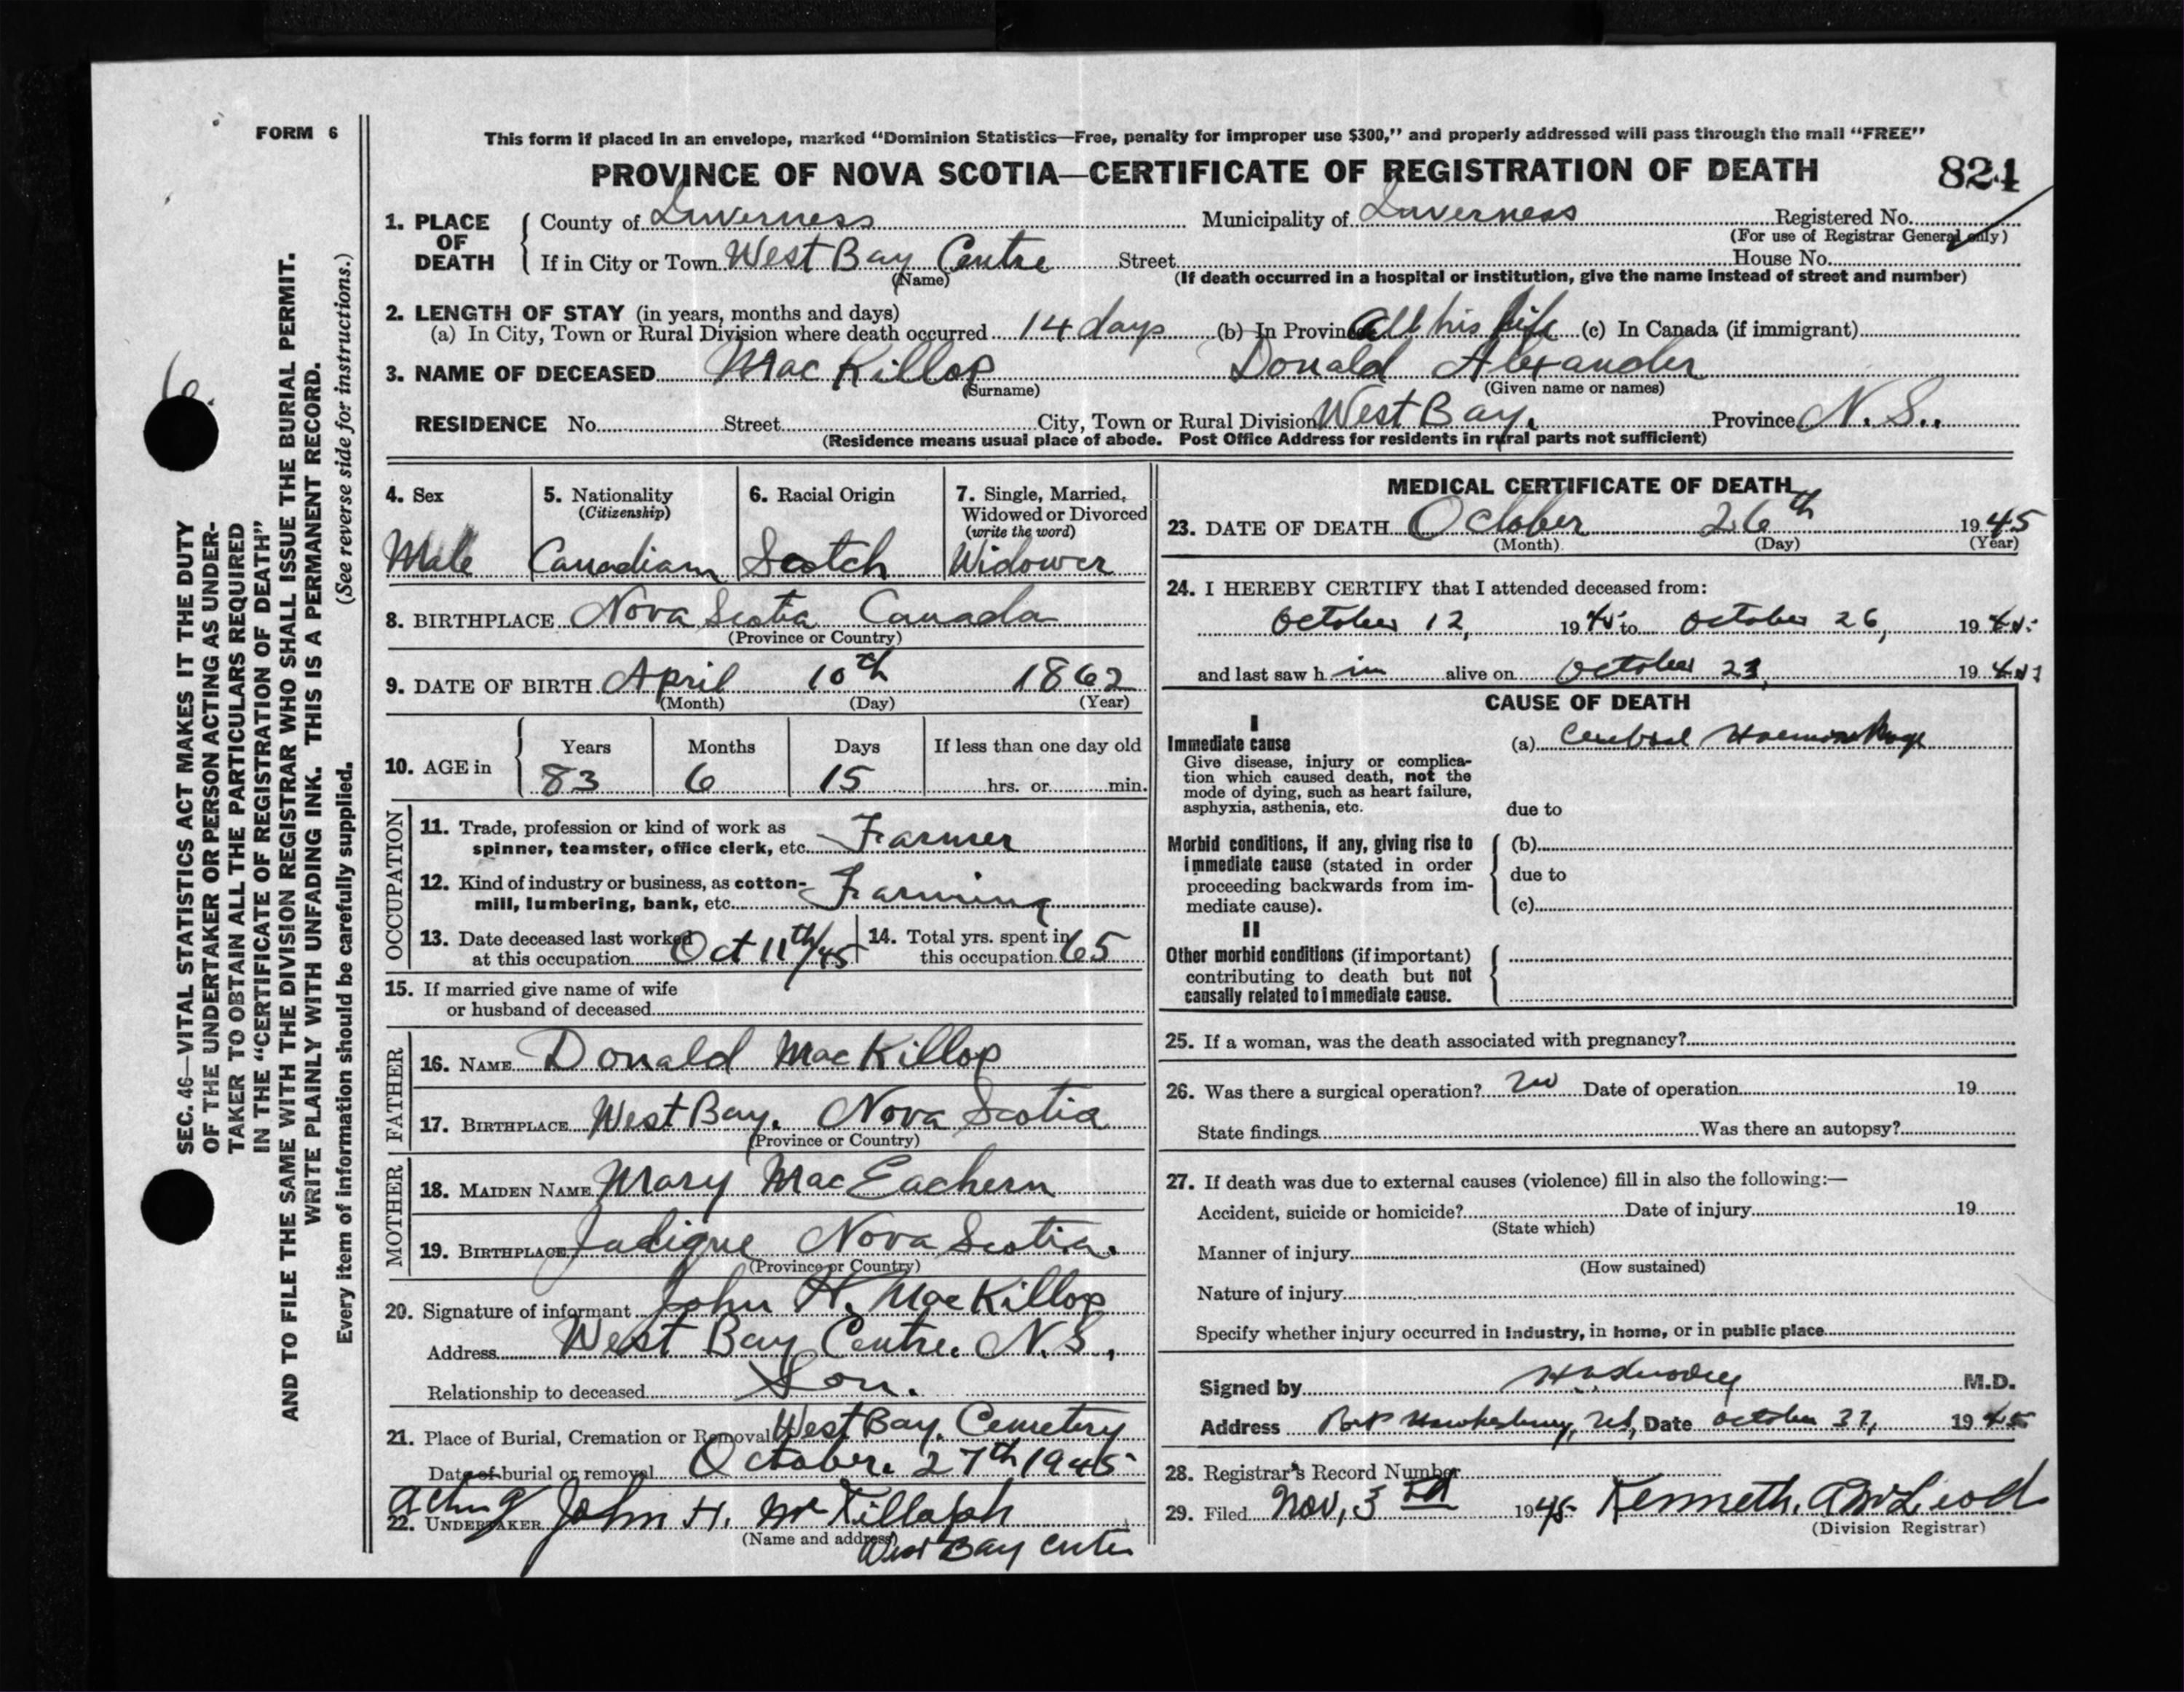 FORM 6
This form if placed in an envelope, marked "Dominion Statistics—Free, penalty for improper use $300," and properly addressed will pass through the mail "FREE"
PROVINCE OF NOVA SCOTIA—CERTIFICATE OF REGISTRATION OF DEATH
824
1. PLACE OF DEATH
County of Inverness Municipality of Inverness Registered No.
(For use of Registrar General only)
If in City or Town West Bay Centre Street House No.
(Name) (If death occurred in a hospital or institution, give the name instead of street and number)
2. LENGTH OF STAY (in years, months and days)
(a) In City, Town or Rural Division where death occurred 14 days (b) In Province All his life (c) In Canada (if immigrant)
3. NAME OF DECEASED MacKillop Donald Alexander
(Surname) (Given name or names)
RESIDENCE No. Street City, Town or Rural Division West Bay. Province N.S..
(Residence means usual place of abode. Post Office Address for residents in rural parts not sufficient)
4. Sex
Male
5. Nationality
(Citizenship)
Canadian
6. Racial Origin
Scotch
7. Single, Married,
Widowed or Divorced
(write the word)
Widower
8. BIRTHPLACE Nova Scotia Canada
(Province or Country)
9. DATE OF BIRTH April 10th 1862
(Month) (Day) (Year)
10. AGE in
Years Months Days If less than one day old
83 6 15 hrs. or min.
OCCUPATION
11. Trade, profession or kind of work as
spinner, teamster, office clerk, etc. Farmer
12. Kind of industry or business, as cotton-
mill, lumbering, bank, etc. Farming
13. Date deceased last worked
at this occupation Oct 11th/45
14. Total yrs. spent in
this occupation 65
15. If married give name of wife
or husband of deceased
FATHER
16. NAME Donald MacKillop
17. BIRTHPLACE West Bay. Nova Scotia
(Province or Country)
MOTHER
18. MAIDEN NAME Mary MacEachern
19. BIRTHPLACE Judique Nova Scotia.
(Province or Country)
20. Signature of informant John H. MacKillop
Address West Bay Centre. N.S.,
Relationship to deceased Son.
21. Place of Burial, Cremation or Removal West Bay. Cemetery
Date of burial or removal October. 27th 1945
Acting
22. UNDERTAKER John H. McKilloph
(Name and address)
West Bay
MEDICAL CERTIFICATE OF DEATH
23. DATE OF DEATH October 26th 1945
(Month) (Day) (Year)
24. I HEREBY CERTIFY that I attended deceased from:
October 12, 1945 to October 26, 1945
and last saw h im alive on October 23, 1945
CAUSE OF DEATH
I
Immediate cause
Give disease, injury or complica-
tion which caused death, not the
mode of dying, such as heart failure,
asphyxia, asthenia, etc.
(a) Cerebral Haemorrhage
due to
Morbid conditions, if any, giving rise to
immediate cause (stated in order
proceeding backwards from im-
mediate cause).
(b)
due to
(c)
II
Other morbid conditions (if important)
contributing to death but not
causally related to immediate cause.
25. If a woman, was the death associated with pregnancy?
26. Was there a surgical operation? no Date of operation 19
State findings Was there an autopsy?
27. If death was due to external causes (violence) fill in also the following:—
Accident, suicide or homicide? Date of injury 19
(State which)
Manner of injury
(How sustained)
Nature of injury
Specify whether injury occurred in industry, in home, or in public place
Signed by M.D.
Address Port Hawkesbury, NS, Date October 1945
28. Registrar's Record Number
29. Filed Nov, 3rd 1945 Kenneth. A McLeod
(Division Registrar)
SEC. 46—VITAL STATISTICS ACT MAKES IT THE DUTY
OF THE UNDERTAKER OR PERSON ACTING AS UNDER-
TAKER TO OBTAIN ALL THE PARTICULARS REQUIRED
IN THE "CERTIFICATE OF REGISTRATION OF DEATH"
AND TO FILE THE SAME WITH THE DIVISION REGISTRAR WHO SHALL ISSUE THE BURIAL PERMIT.
WRITE PLAINLY WITH UNFADING INK. THIS IS A PERMANENT RECORD.
Every item of information should be carefully supplied. (See reverse side for instructions.)
6.